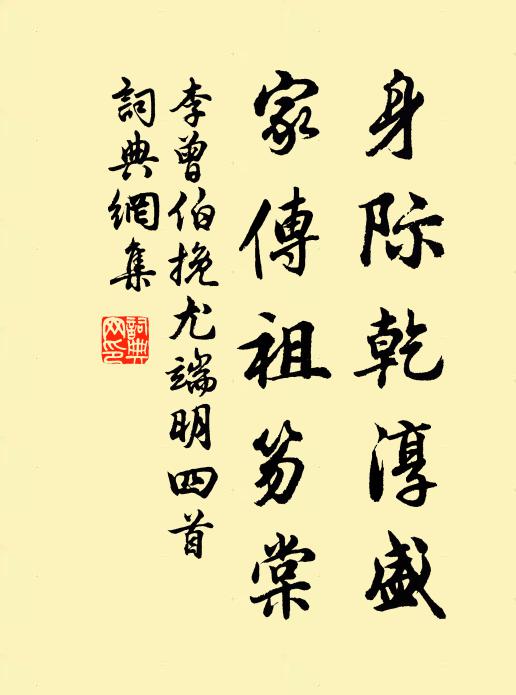 身际乾淳盛
家傳祖笏棠
李曾伯挽尤端明四首
詞典網集
詞典網印